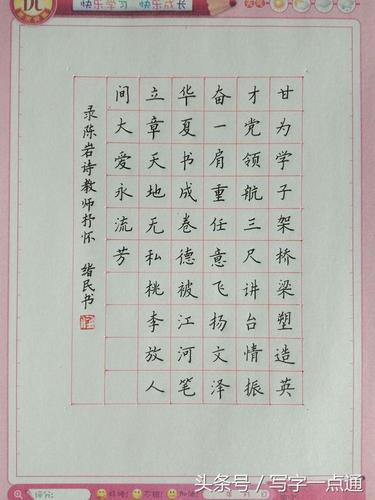 快乐学习 快乐成长
甘为学子架桥梁塑造英
才党领航三尺讲台情振
奋一肩重任意飞扬文泽
华夏书成卷德被江河笔
立章天地无私桃李放人
间大爱永流芳
录陈岩诗教师抒怀 绪民书
评分:
头条号/写字一点通